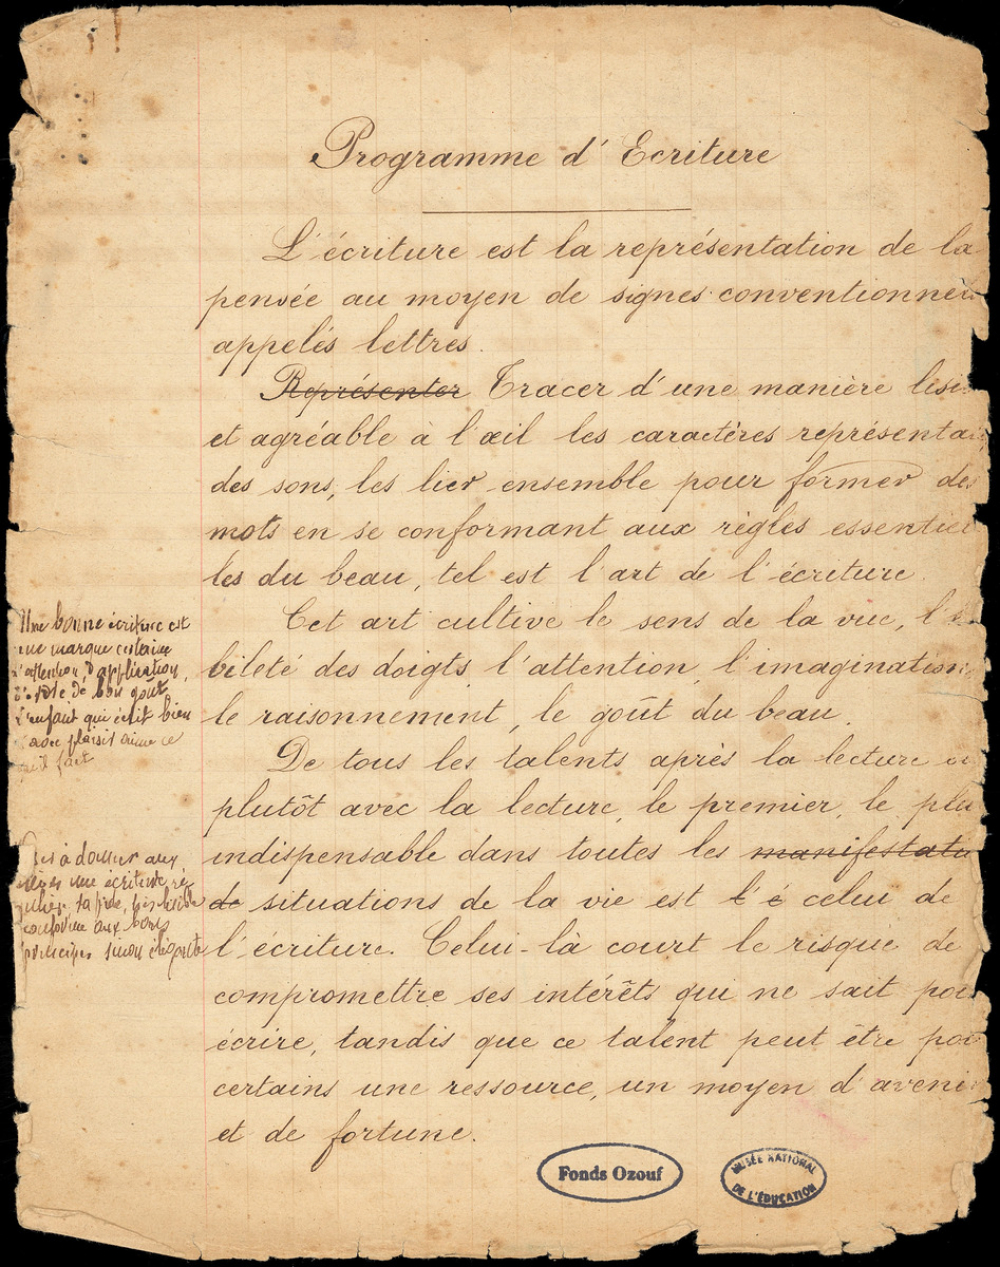 Programme d'Ecriture
L'écriture est la représentation de la
pensée au moyen de signes conventionnels
appelés lettres.
Représenter Tracer d'une manière lisi
et agréable à l'œil les caractères représentan
des sons, les lier ensemble pour former des
mots en se conformant aux règles essentiel
les du beau, tel est l'art de l'écriture
Cet art cultive le sens de la vue, l'
bileté des doigts, l'attention, l'imagination
le raisonnement, le goût du beau.
De tous les talents après la lecture ou
plutôt avec la lecture, le premier, le plu
indispensable dans toutes les manifestatio
de situations de la vie est l'é celui de
l'écriture. Celui-là court le risque de
compromettre ses intérêts qui ne sait pas
écrire, tandis que ce talent peut être pou
certains une ressource, un moyen d'avenir
et de fortune.
Une bonne écriture est
une marque certaine
d'attention, d'application,
de bon goût
L'enfant qui écrit bien
avec plaisir aime ce
qu'il fait
à donner aux
élèves une écriture ré
gulière, rapide, bien lisible
conforme aux bons
principes sinon élégante
Fonds Ozouf
MUSÉE NATIONAL
DE L'ÉDUCATION